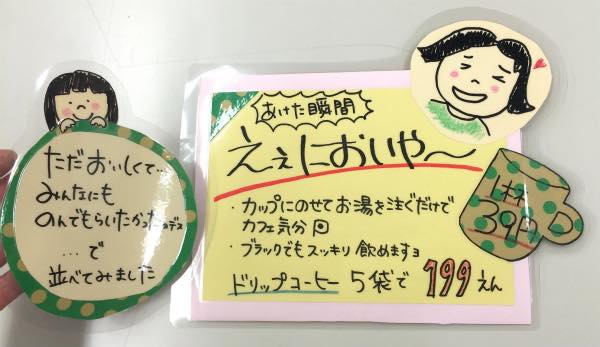 ただおいしくて…
みんなにも
のんでもらいたかったのデス
…で
並べてみました
あけた瞬間
ええにおいや〜
・カップにのせてお湯を注ぐだけで
カフェ気分
・ブラックでもスッキリ飲めますョ
ドリップコーヒー 5袋で 199えん
1杯
39円